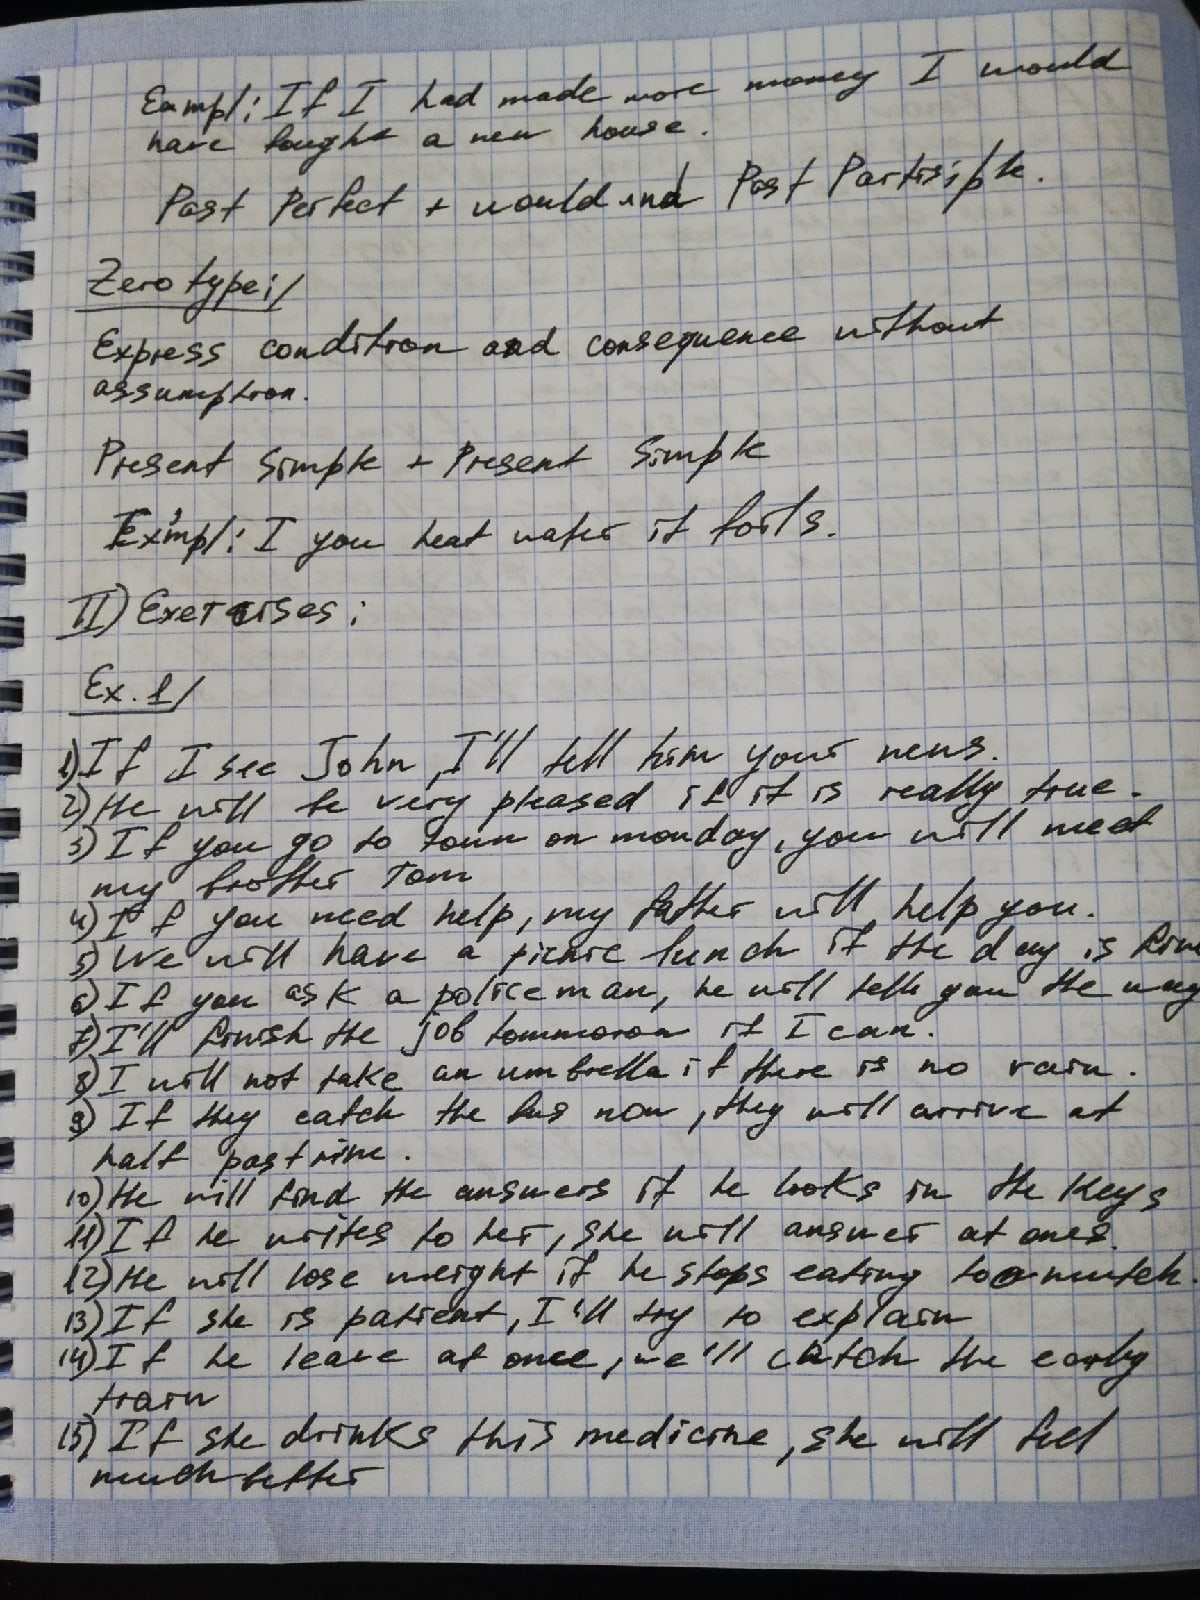 Exampl: If I had made more money I would
have bought a new house.
Past Perfect + would and Past Partisiple.
Zero type:/
Express condition and consequence without
assumption.
Present Simple + Present Simple
Exmpl: I you heat water it boils.
II) Exercises:
Ex. 1/
1) If I see John, I'll tell him your news.
2) He will be very pleased if it is really true.
3) If you go to town on monday, you will meet
my brother Tom
4) If you need help, my father will help you.
5) We will have a picnic lunch if the day is fine
6) If you ask a policeman, he will tell you the way
7) I'll finish the job tommorow if I can.
8) I will not take an umbrella if there is no rain.
9) If they catch the bus now, they will arrive at
half past nine.
10) He will find the answers if he looks in the keys
11) If he writes to her, she will answer at ones.
12) He will lose weight if he stops eating too mutch.
13) If she is patient, I'll try to explain
14) If he leave at once, we'll catch the early
train
15) If she drinks this medicine, she will feel
much better